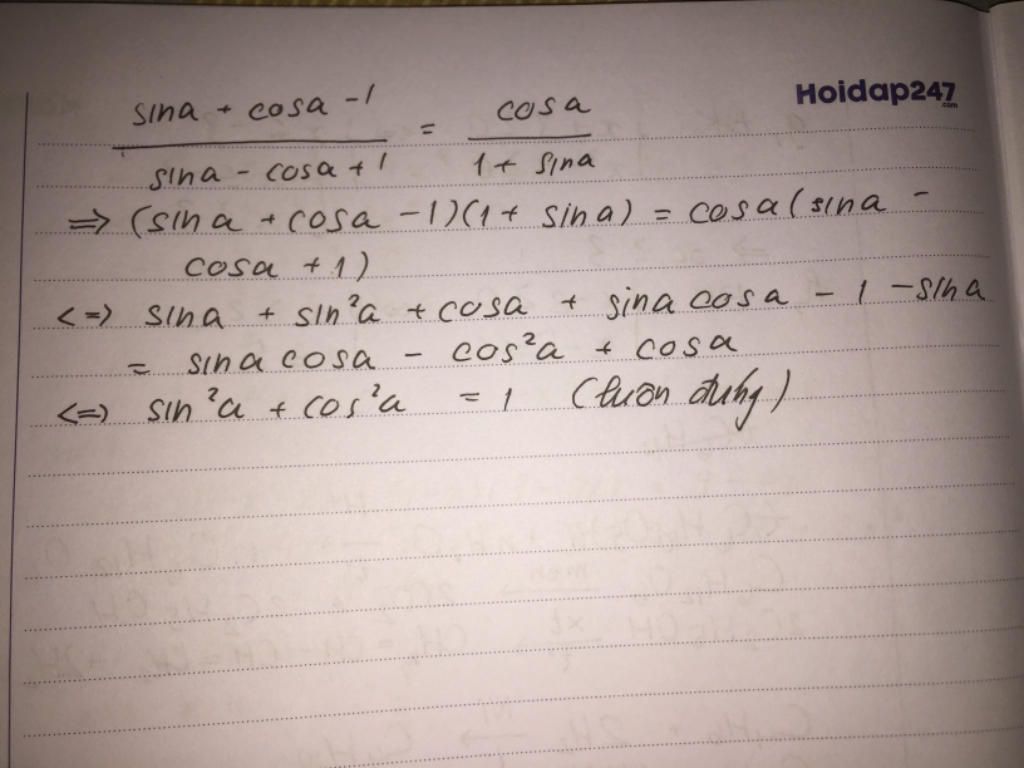 Hoidap247
.com
sina + cosa -1 / sina - cosa + 1 = cosa / 1 + sina
=> (sina + cosa - 1)(1 + sina) = cosa(sina -
cosa + 1)
<=> sina + sin²a + cosa + sina cosa - 1 - sina
= sina cosa - cos²a + cosa
<=> sin²a + cos²a = 1 (luôn đúng)